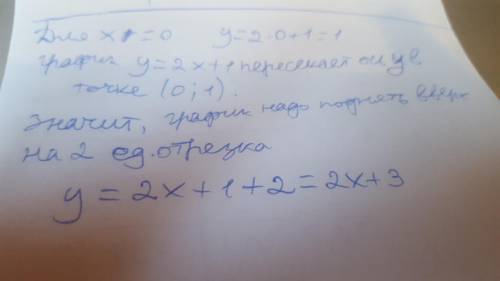 Для x = 0 y = 2·0+1=1
график y = 2x+1 пересекает оси y в
точке (0;1).
Значит, график надо поднять вверх
на 2 ед.отрезка
y = 2x+1+2=2x+3